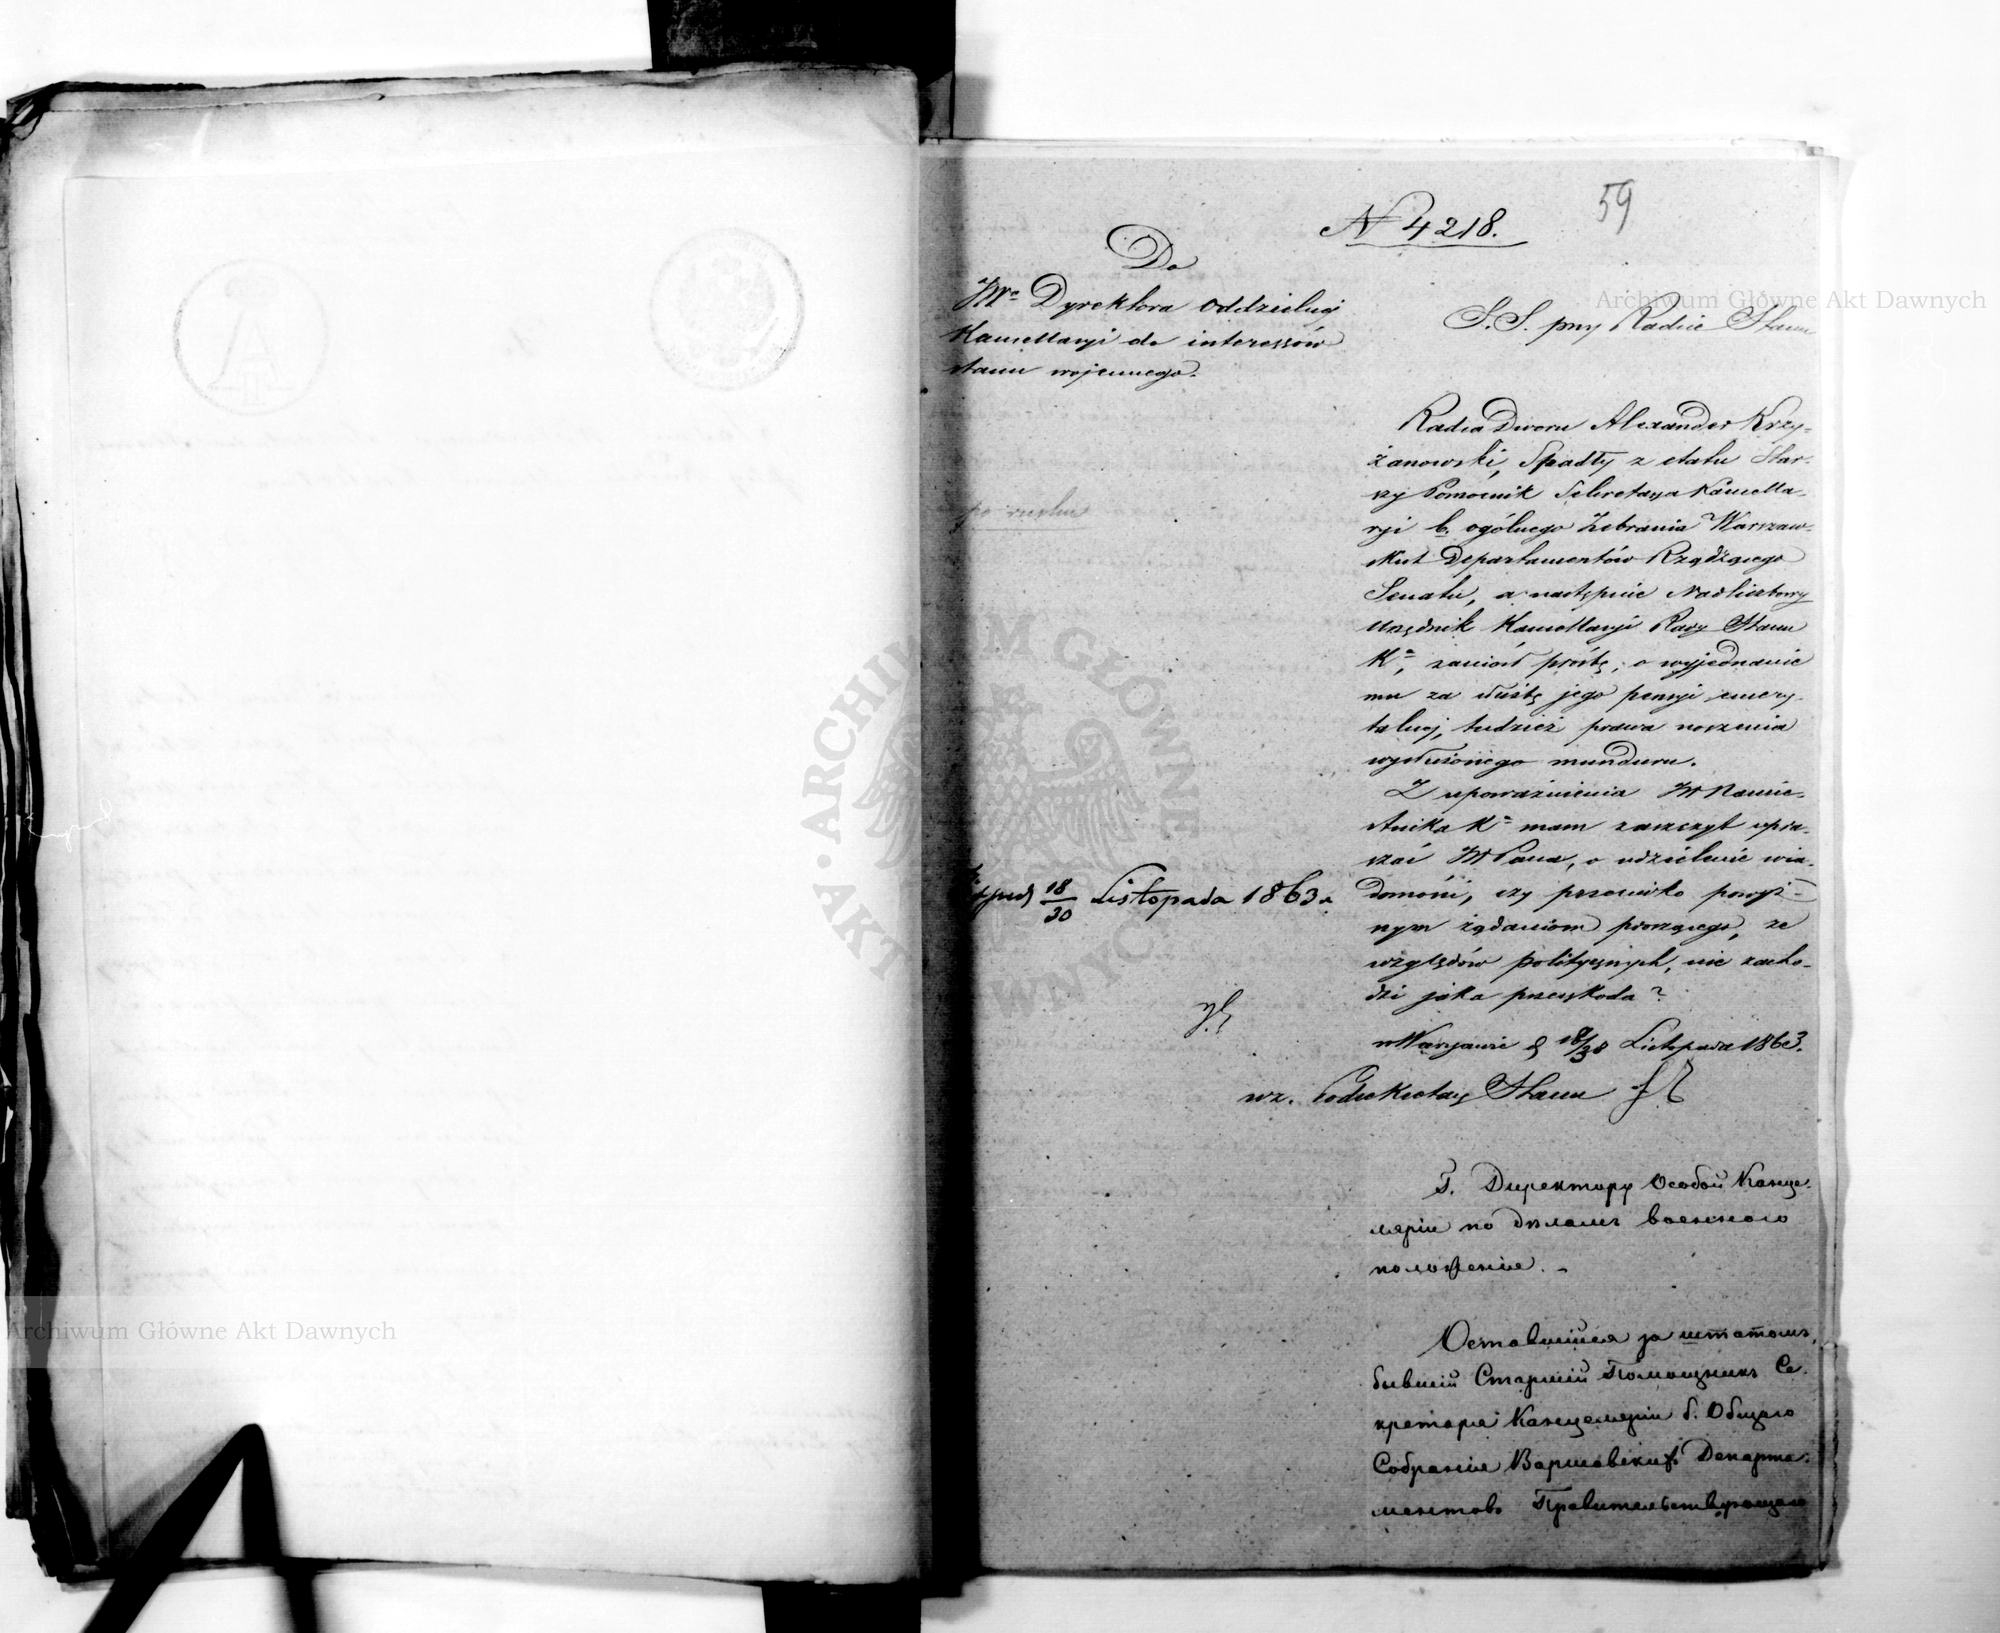 59
N 4218.
Do
JWo Dyrektora oddzielnej
Kancellaryi do interessów
stanu wojennego.
S.S. przy Radzie Stanu
po rusku
Radca Dworu Alexander Krzy-
żanowski, Spadły z etatu Star-
szy Pomocnik Sekretarza Kancella-
ryi b. ogólnego Zebrania Warszaw-
skich Departamentów Rządzącego
Senatu, a następnie Nadliczbowy
Urzędnik Kancellaryi Rady Stanu
Ka, zaniósł prośbę, o wyjednanie
mu za służbę jego pensyi emery-
talnej, tudzież prawa noszenia
wysłużonego munduru.
Z upoważnienia JW Namie-
stnika Ka mam zaszczyt upra-
szać JW Pana, o udzielenie wia-
domości, czy przeciwko powyż-
szym żądaniom proszącego, ze
względów politycznych, nie zacho-
dzi jaka przeszkoda?
18/30 Listopada 1863 r.
w Warszawie d 18/30 Listopada 1863.
wz. Podsekretarz Stanu
Г. Директору Особой Канце-
ляріи по дѣламъ военнаго
положенія. -
Оставшійся за штатомъ,
бывшій Старшій Помощникъ Се-
кретаря Канцеляріи б. Общаго
Собранія Варшавскихъ Департа-
ментовъ Правительствующаго
Archiwum Główne Akt Dawnych
Archiwum Główne Akt Dawnych
ARCHIWUM GŁÓWNE AKT DAWNYCH